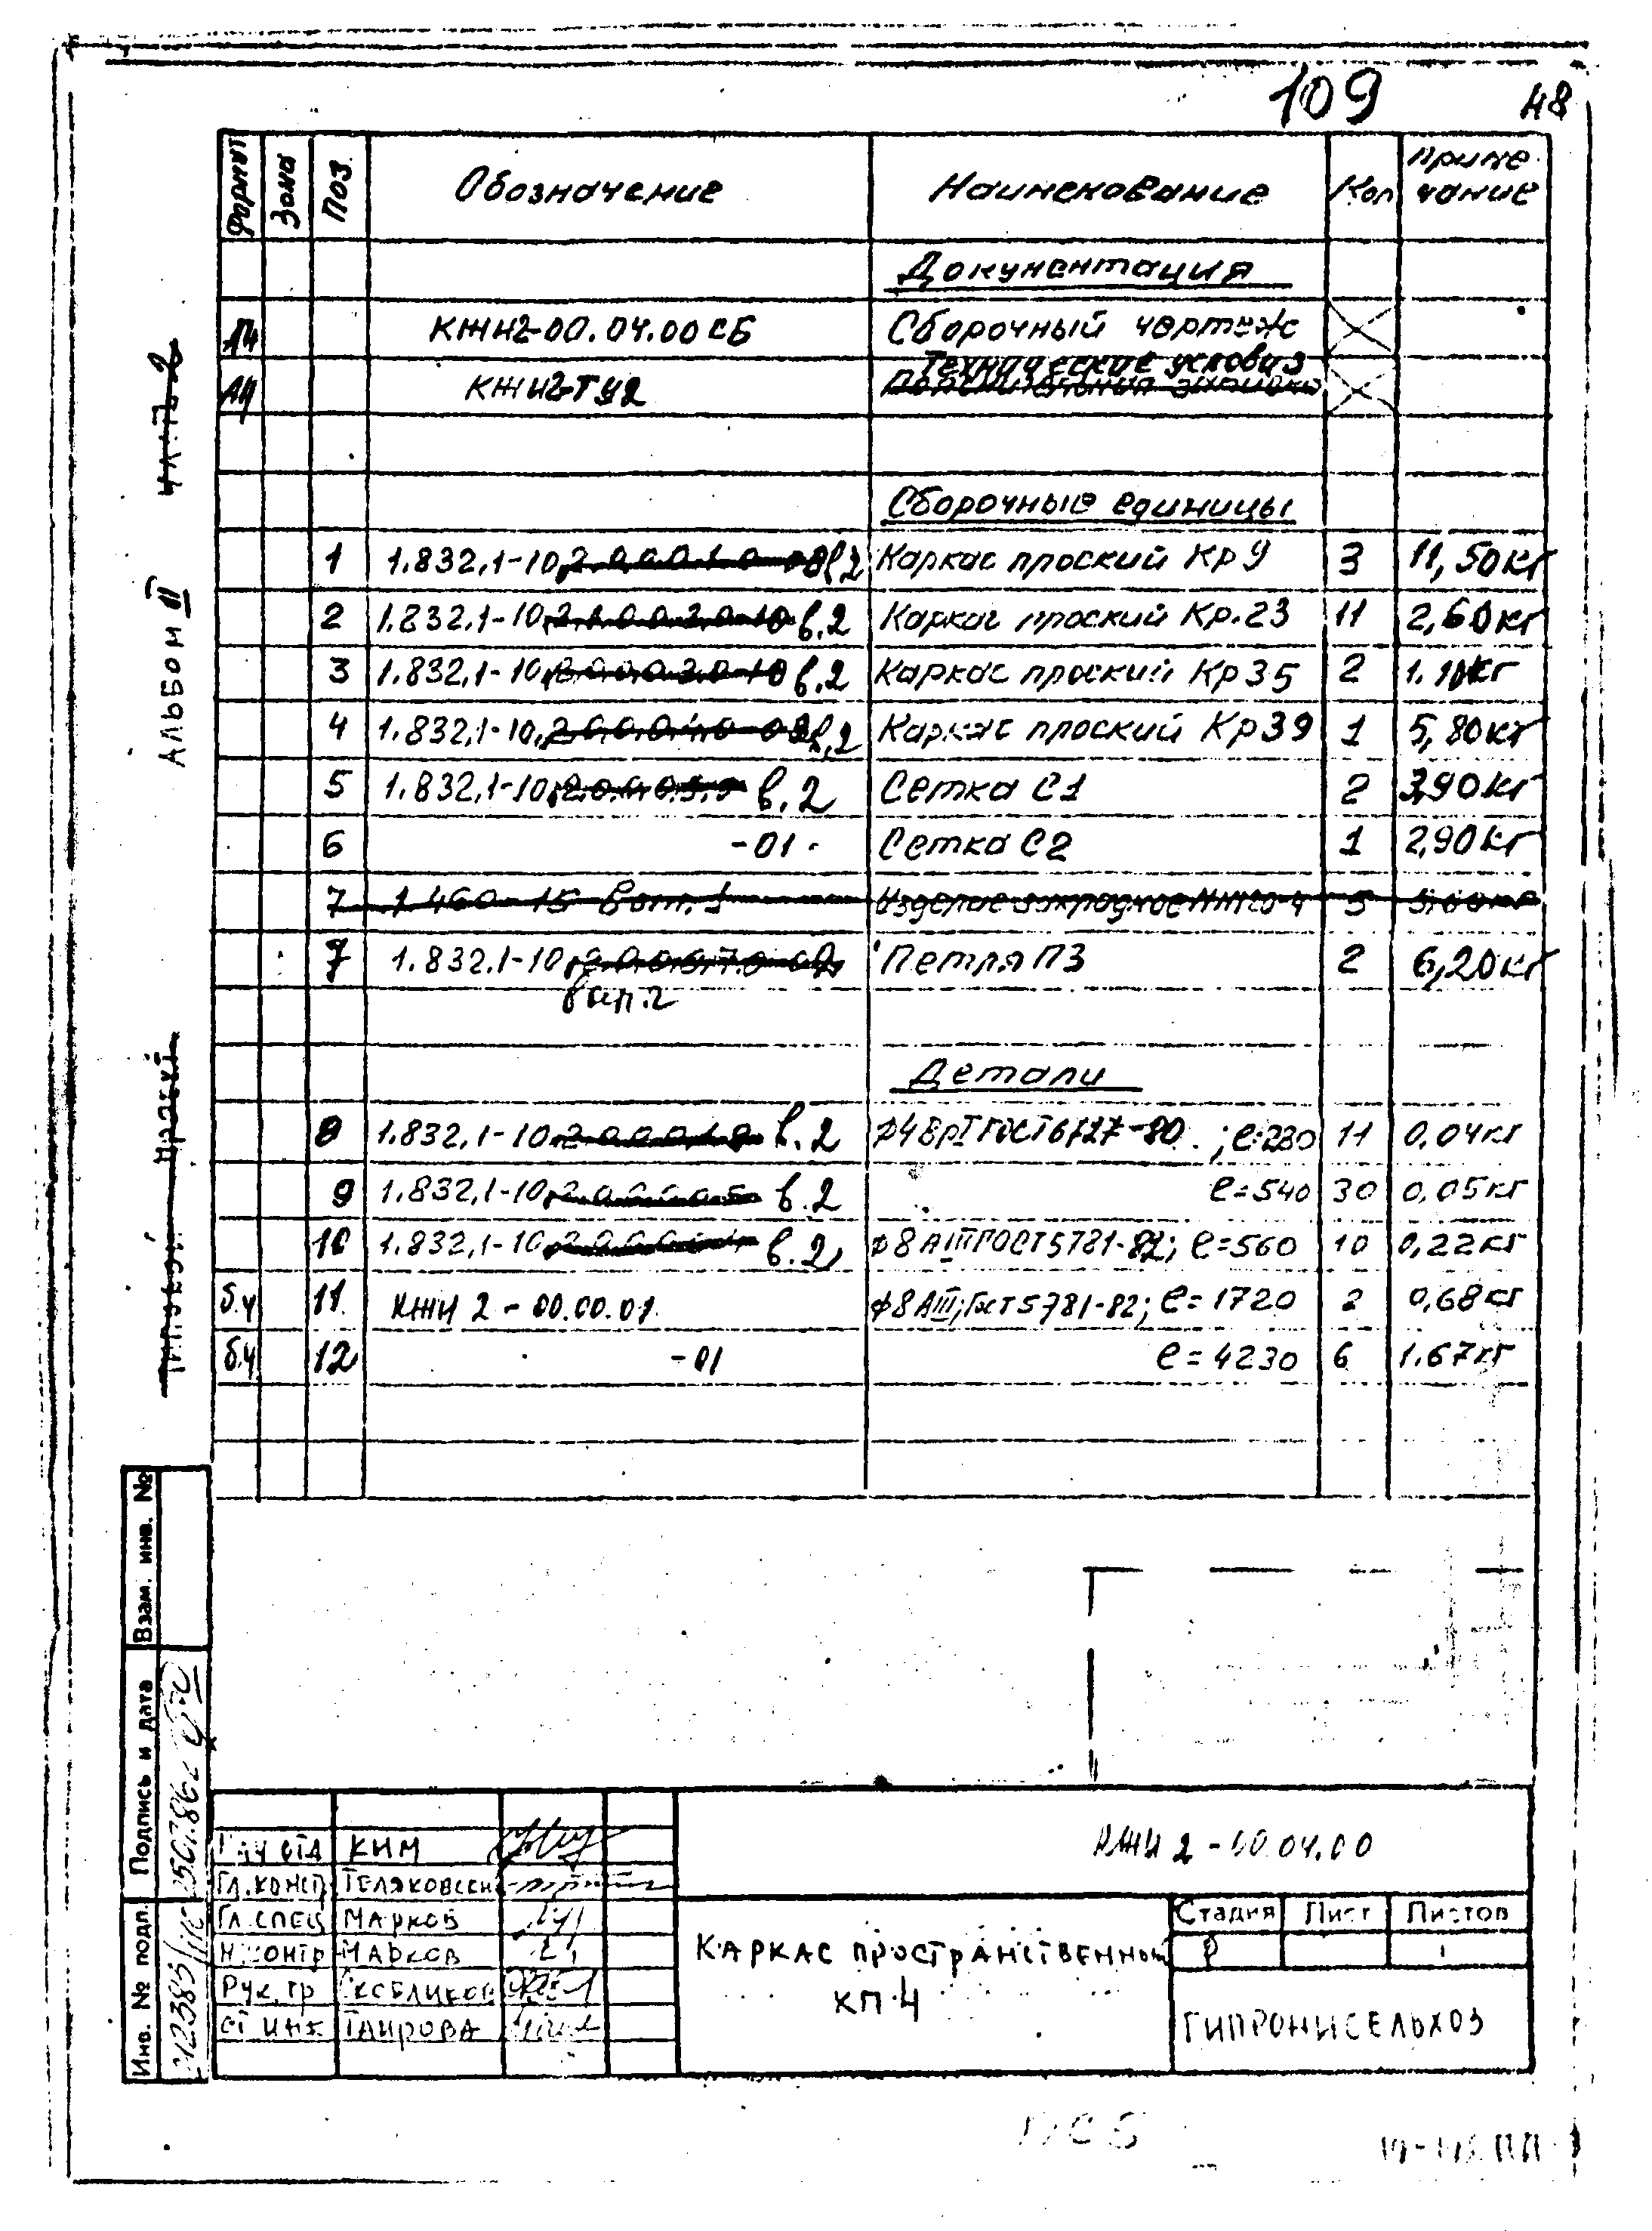 109
48
Формат Зона Поз. Обозначение Наименование Кол Приме
чание
Документация
А4 КЖИ2-00.04.00СБ Сборочный чертеж
Технические условия
А4 КЖИ2-ТУ2
Сборочные единицы
1 1.832.1-10 в.2 Каркас плоский Кр9 3 11,50кг
2 1.832.1-10 в.2 Каркас плоский Кр.23 11 2,60кг
3 1.832.1-10 в.2 Каркас плоский Кр35 2 1.10кг
4 1.832.1-10 в.2 Каркас плоский Кр39 1 5,80кг
5 1.832.1-10 в.2 Сетка С1 2 3,90кг
6 -01 Сетка С2 1 2,90кг
7 1.460-15 вып.1 Изделие закладное 5
7 1.832.1-10 Петля П3 2 6,20кг
вып.2
Детали
8 1.832.1-10 в.2 ф4ВрI ГОСТ6727-80; ℓ=280 11 0,04кг
9 1.832.1-10 в.2 ℓ=540 30 0,05кг
10 1.832.1-10 в.2 ф8АIII ГОСТ5781-82; ℓ=560 10 0,22кг
б.ч 11 КЖИ 2-00.00.01 ф8АIII; Гост5781-82; ℓ=1720 2 0,68кг
б.ч 12 -01 ℓ=4230 6 1.67кг
АЛЬБОМ III
Взам. инв. №
Подпись и дата
Инв. № подл.
Нач отд КИМ
Гл.конст
Гл.спец Марков
Н.контр Марков
Рук.гр
ст инж Таирова
КЖИ 2-00.04.00
КАРКАС ПРОСТРАНСТВЕННЫЙ
КП-4
Стадия Лист Листов
Р 1
ГИПРОНИСЕЛЬХОЗ